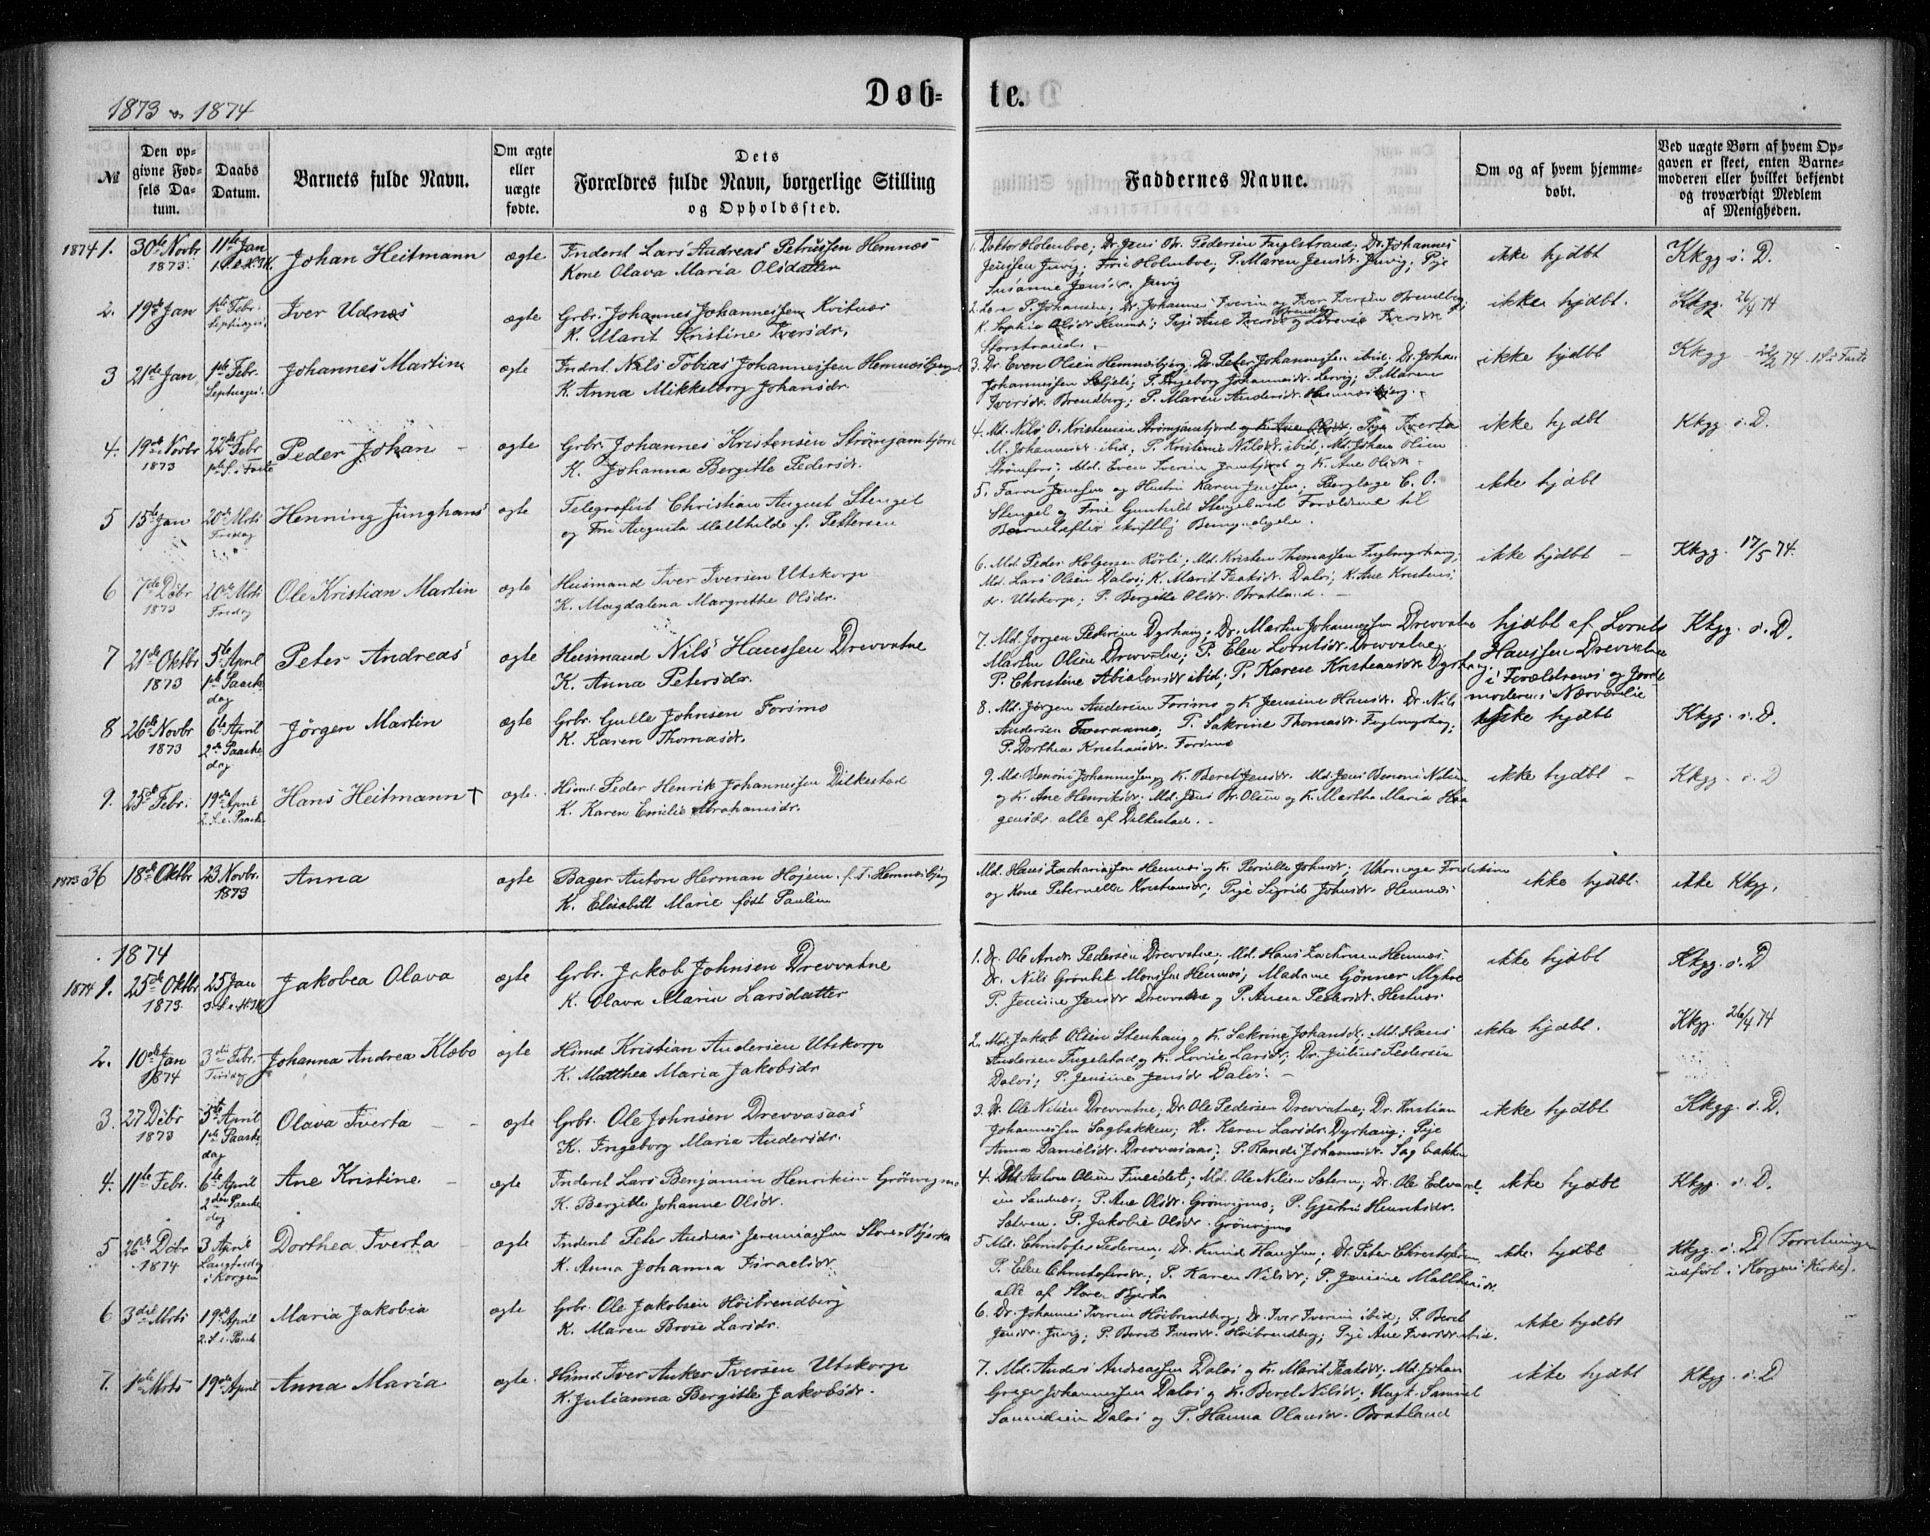 1873 og 1874
Døb-
te.
№
Den opgivne Fødsels Datum.
Daabs Datum.
Barnets fulde Navn.
Om ægte eller uægte fødte.
Dets Forældres fulde Navn, borgerlige Stilling og Opholdssted.
Faddernes Navne.
Om og af hvem hjemmedøbt.
Ved uægte Børn af hvem Opgaven er skeet, enten Barnemoderen eller hvilket bekjendt og troværdigt Medlem af Menigheden.
1874 1. 30te Novbr 1873 11te Jan Johan Heitmann ægte Inderst Lars Andreas Petersen Hemnes
Kone Olava Maria Olsdatter
1. Doktor Holmboe; Dr. Jens Br. Pedersen Fuglstrand; Dr. Johannes
Jenssen Juvig; Frue Holmboe; P. Maren Jensdr. Juvig; Pige
Susanne Jensdr. Juvig
ikke hjdbt Kkgg i. D.
2. 19de Jan 1ste Febr. Septuages. Iver Udnes ægte Grbr. Johannes Johannessen Kvitnes
K. Marit Kristine Iversdr.
2. P. Johansen; Dr. Johannes Iversen og Iver Iversen Brendberg;
K. Sophie Olsdr Hemnes; Pige Ane Iversdr Brendbg og Lovise Iversdr
Storstrand.
ikke hjdbt. Kkgg. 26/4 74
3 21de Jan 1ste Febr. Septuages. Johannes Martin ægte Inderst Nils Tobias Johannessen Hemnesbjerget
K. Anna Mikkeborg Johansdr.
3. Dr Even Olsen Hemnesbjerg; Dr. Peter Johannessen ibid; Dr. Johan
Johannessen Sæljeli; P. Ingeborg Johannesdr. Lervig; P. Maren
Iversdr. Brendberg; P. Maren Andersdr. Hemnesbjerg.
ikke hjdbt Kkgg 22/2 74. 1 S. i Faste
4. 19de Novbr 1873 22de Febr 1ste S. i Faste Peder Johan - ægte Grbr. Johannes Kristensen Strømjamtjord
K. Johanna Bergitte Pedersdr.
4. Md. Nils O. Kristensen Strømjamtjord og K. Ane Olsdr. Pige Iverta
M. Johannesdr. ibid; P. Kristine Nilsdr. ibid; Md. Johan Olsen
Strømfors; Md. Even Iversen Jamtjord og K. Ane Olsdr. -
ikke hjdbt Kkgg. i. D.
5 15de Jan 20de Mrts Fredag Henning Junghans ægte Telegrafist Christian August Stengel
og Fru Augusta Matthilde f. Pettersen
5. Farver Jenssen og Hustru Karen Jenssen; Berglæge C. O.
Stengel og Frue Gunhild Stengel med Forældrene til
Barnet efter skriftlig Bemyndigelse.
ikke hjdbt
6 7de Dcbr 1873 20de Mrts Fredag Ole Kristian Martin ægte Husmand Iver Iversen Utskarp
K. Magdalena Margrethe Olsdr.
6. Md. Peder Holgersen Rørli; Md. Kristen Thomassen Fuglmyrhaug;
Md. Lars Olsen Dalos; K. Marit Isaksdr. Dalos; K. Ane Kristens
dr. Utskarp; P. Bergitte Olsdr. Bratland. -
ikke hjdbt - Kkgg. 17/5 74.
7 21de Oktbr 1873 5te April 1ste Paaskedag Peter Andreas ægte Husmand Nils Hanssen Drevvatne
K. Anna Petersdr.
7. Md. Jørgen Pedersen Dyrhaug; Dr. Martin Johannessen Drevvatne
Martin Olsen Drevvatne; P. Elen Lorntsdr. Drevvatne;
P. Christine Abialonsdr ibid; P. Karen Kristiansdr. Dyrhaug.
hjdbt af Lornts
Hanssen Drevvatne
i Forældrenes og Jordemoderens Nærværelse
Kkgg. i. D.
8 26de Novbr 1873 6te April 2den Paaskedag Jörgen Martin ægte Grbr. Gulle Johnsen Forsmo
K. Karen Thomasdr.
8. Md. Jørgen Andersen Forsmo og K Jensine Hansdr. Dr. Nils
Andersen; P. Sakrine Thomasdr. Fuglmyrhaug;
P. Dorthea Kristiansdr. Forsmo
ikke hjdbt Kkgg. i. D.
9. 25de Febr. 19de April 2. S. e. Paaske Hans Heitmann † ægte. Husmd Peder Henrik Johannessen Dilkestad
K. Karen Emilie Abrahamsdr.
9. Md. Benoni Johannessen og K. Beret Jensdr. Md. Jens Benoni Nilsen
og K. Ane Henriksdr; Md. Jens Br. Olsen og K. Martha Maria Haagensdr. alle af Dilkestad. -
ikke hjdbt - Kkgg. i. D
1873 36 18de Oktbr 23 Novbr. 1873 Anna ægte Bager Anton Herman Højem f. T. Hemnesbjerg
K. Elisabeth Marie født Paulsen
Md. Hans Zachariassen Hemnes og K. Pernille Johnsdr; Uhrmager
og Kone Petternelle Kristiansdr; Pige Sigrid Johnsdr. Hemnes
ikke hjdbt. ikke Kkgg.
1874
1874 1. 25de Oktbr 1873. 25 Jan Jakobea Olava ægte Grbr. Jakob Johnsen Drevvatne
K. Olava Maria Larsdatter
1. Dr. Ole Andr. Pedersen Drevvatne; Md. Hans Zachrisen Hemnes;
Dr. Nils Grønbek Monssen Hemnes; Madame Gønner Myhre
P. Jensine Jensdr Drevvatne og P. Anna Pedersdr. Hestnes.
ikke hjdbt Kkgg. i. D
2. 10de Jan 1874 3die Febr. Tirsdag Johanna Andrea Klæbo ægte Husmd Kristian Andersen Utskarp
K. Matthea Maria Jakobsdr
2. Md. Jakob Olsen Stenhaug og K. Sakrine Johansdr; Md. Hans
Andersen Fugelstad og K. Lovise Larsdr; Dr. Julius Pedersen
Dalos; P. Jensine Jensdr Dalos. -
ikke hjdbt. Kkgg. 26/4 74
3. 27 Dcbr 1873 5te April 1ste Paaskedag Olava Iverta - - ægte Grbr. Ole Johnsen Drevvasaas
K. Ingeborg Maria Andersdr.
3. Dr. Ole Nilsen Drevvatne; Dr Ole Pedersen Drevvatne; Dr. Kristian
Johannessen Sagbakken; K. Karen Larsdr. Dyrhaug; Pige
Anna Danielsdr. Drevvasaas; P. Randi Johannesdr. Sagbakken
ikke hjdbt Kkgg. i. D.
4. 11te Febr. 6te April 2den Paaskedag Ane Kristine - ægte Inderst Lars Benjamin Henriksen Grönvigmo
K. Bergitte Johanne Olsdr.
4. Md Anton Olsen Finneidet; Md. Ole Nilsen Sæteren; Dr. Ole Edvardsen Sandnes; P. Ane Olsdr. Grönvigmo; P. Gjertrud Henriksdr.
P. Jakobie Olsdr. Grönvigmo
ikke hjdbt Kkgg. i. D.
5 26de Dcbr 1874 3 April Langfredag i Korgen Dorthea Iverta - ægte Inderst Peter Andreas Jeremiassen Store-Bjerka
K. Anna Johanna Israelsdr
5 Md. Christofer Pedersen, Dr. Knud Hanssen; Dr. Peter Christofersen
P. Elen Christofersdr; P. Karen Nilsdr; P. Jensine Matthisdr.
alle af Store Bjerka
ikke hjdbt Kkgg. i. D (Forretningen
udført i Korgens Kirke).
6 3die Mrts 19de April 2. S. e. Paaske Maria Jakobea ægte Grbr. Ole Jakobsen Höibrendberg
K. Maren Brose Larsdr.
6. Dr. Johannes Iversen Höibrendberg; Dr. Iver Iversen ibid; P. Beret
Jensdr. Juvig; P. Beret Iversdr. Höibrendberg; Pige Ane Iversdr ibid.
ikke hjdbt
7. 1ste Mrts 19de April Anna Maria ægte. Husmd Iver Anker Iversen Utskarp
K. Julianna Bergitte Jakobsdr.
7. Md. Anders Andreassen Dalos og K. Marit Isaksdr; Md. Johan
Greger Johannessen Dalos og K. Beret Nilsdr; Ungk. Samuel
Samuelsen Dalos og P. Hanna Olausdr. Bratland
ikke hjdbt Kkgg. i. D